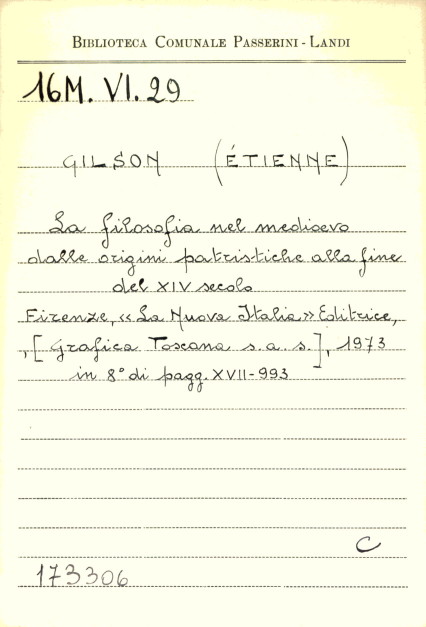 BIBLIOTECA COMUNALE PASSERINI - LANDI
16M. VI. 29
GILSON (ÉTIENNE)
La filosofia nel medioevo
dalle origini patristiche alla fine
del XIV secolo
Firenze, «La Nuova Italia» Editrice,
, [Grafica Toscana s.a.s.], 1973
in 8° di pagg. XVII-993
C
173306